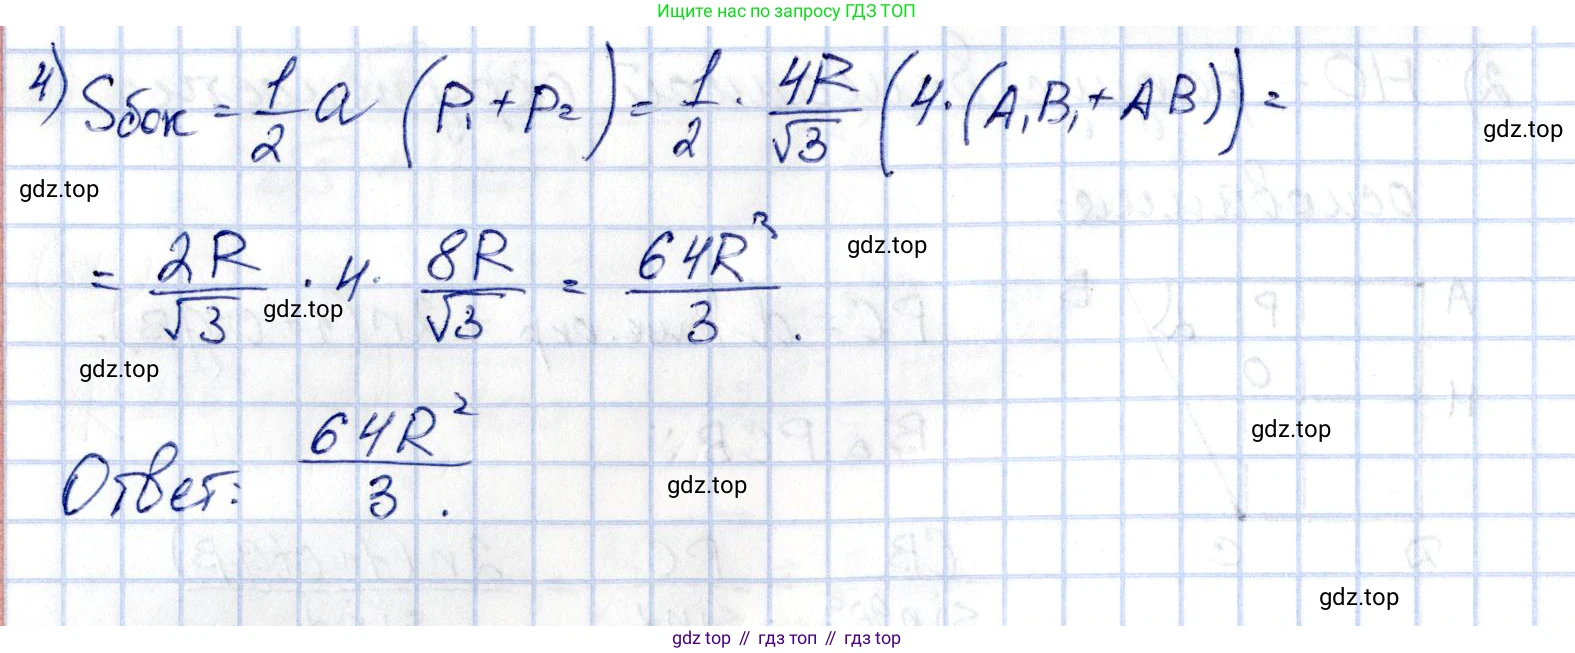 Ищите нас по запросу ГДЗ ТОП
4) Sбок = 1/2 a (P₁ + P₂) = 1/2 · 4R/√3 (4·(A₁B₁ + AB)) =
gdz.top
gdz.top
= 2R/√3 · 4 · 8R/√3 = 64R²/3 .
gdz.top
gdz.top
gdz.top
Ответ: 64R²/3 .
gdz.top
gdz.top
gdz.top
gdz top // гдз топ // гдз top